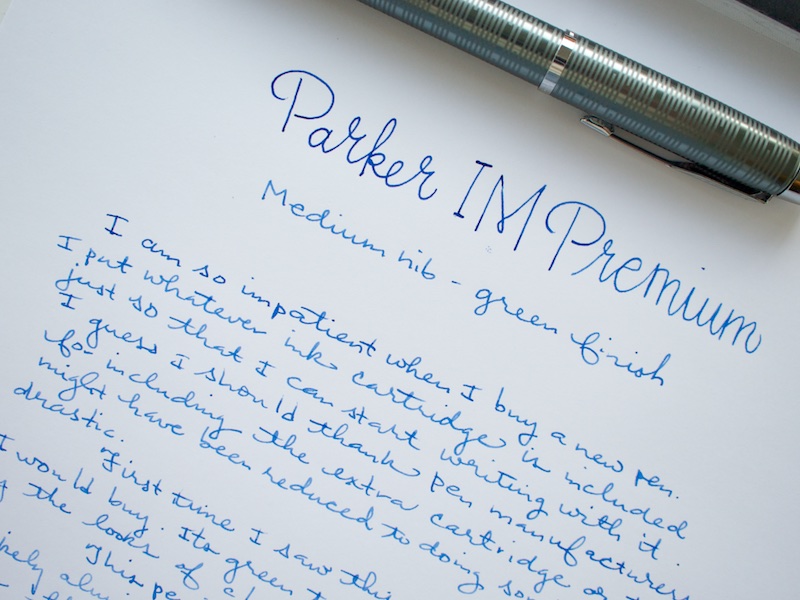 Parker IM Premium
Medium nib - green finish
I am so impatient when I buy a new pen.
I put whatever ink cartridge is included
just so that I can start writing with it.
I guess I should thank pen manufacturers
for including the extra cartridge or
might have been reduced to doing
drastic.
First time I saw this
I would buy. Its green
the looks of
This pe